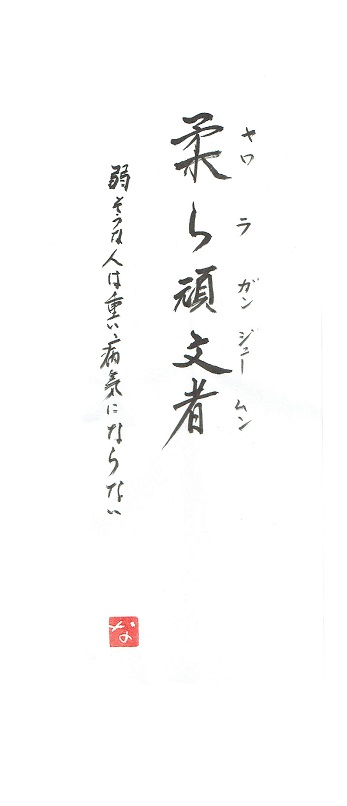 ヤワ ラ ガン ジュー ムン
柔ら頑丈者
弱そうな人は重い病気にならない
な